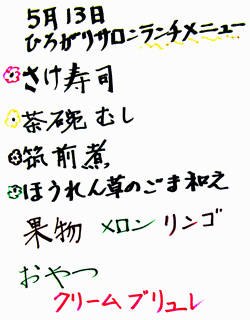 5月13日
ひろがりサロンランチメニュー
さけ寿司
茶碗むし
筑前煮
ほうれん草のごま和え
果物 メロン リンゴ
おやつ
クリームブリュレ